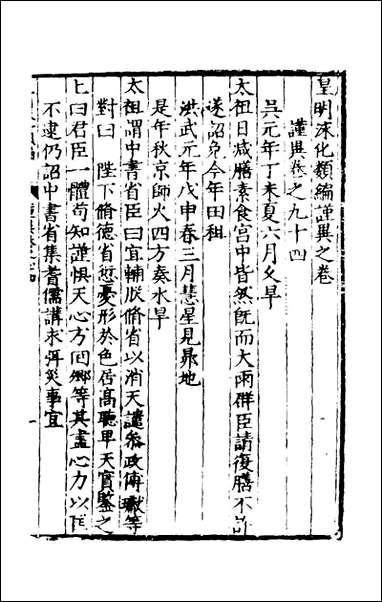 皇明泳化類編謹異之卷
謹異卷之九十四
吳元年丁未夏六月久旱
太祖日减膳素食宮中皆然旣而大雨群臣請復膳不許
遂詔免今年田租
洪武元年戊申春三月彗星見昴地
是年秋京師火四方奏水旱
太祖謂中書省臣曰宜輔朕脩省以消天譴叅政傅瓛等
對曰 陛下脩德省愆憂形於色居高聽卑天實鑒之
上曰君臣一體苟知謹惧天心方回卿等其盡心力以匡
不逮仍詔中書省集耆儒講求弭災事宜